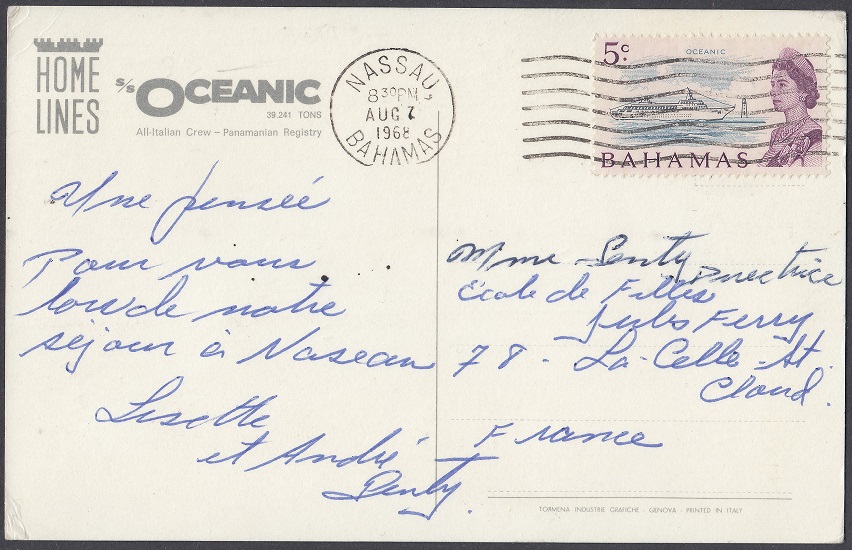 HOME
LINES
s/s OCEANIC
39.241 TONS
All-Italian Crew – Panamanian Registry
NASSAU,
8 30 PM
AUG 7
1968
BAHAMAS
5c
OCEANIC
BAHAMAS
Une pensée
Pour vous
lors de notre
séjour à Naseau
Lisette
et André
Penty.
Mme Penty Directrice
Ecole de Filles
Jules Ferry
78 - La-Celle-St.
Cloud.
France
TORMENA INDUSTRIE GRAFICHE - GENOVA - PRINTED IN ITALY